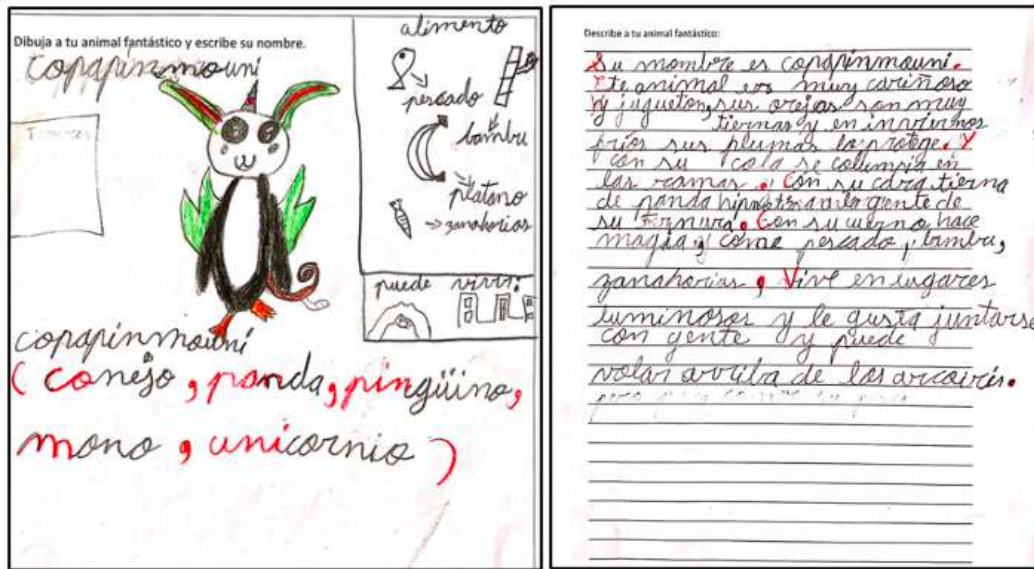 Dibuja a tu animal fantástico y escribe su nombre.
copapinmouni
alimento
pescado
bambu
platano
zanahorias
puede vivir:
copapinmouni
(conejo, panda, pingüino,
mono, unicornio)
Describe a tu animal fantástico:
Su nombre es copapinmouni.
animal es muy cariñoso
y jugueton, sus orejas son muy
tiernas y en inviernos
frios sus plumas lo protege. Y
con su cola se columpia en
las ramas. Con su cara tierna
de panda a la gente de
su ternura. Con su cuerno hace
magia y come pescado, bambu,
zanahorias, Vive en lugares
luminosos y le gusta juntarse
con gente y puede
volar arriba de los arcoiris.